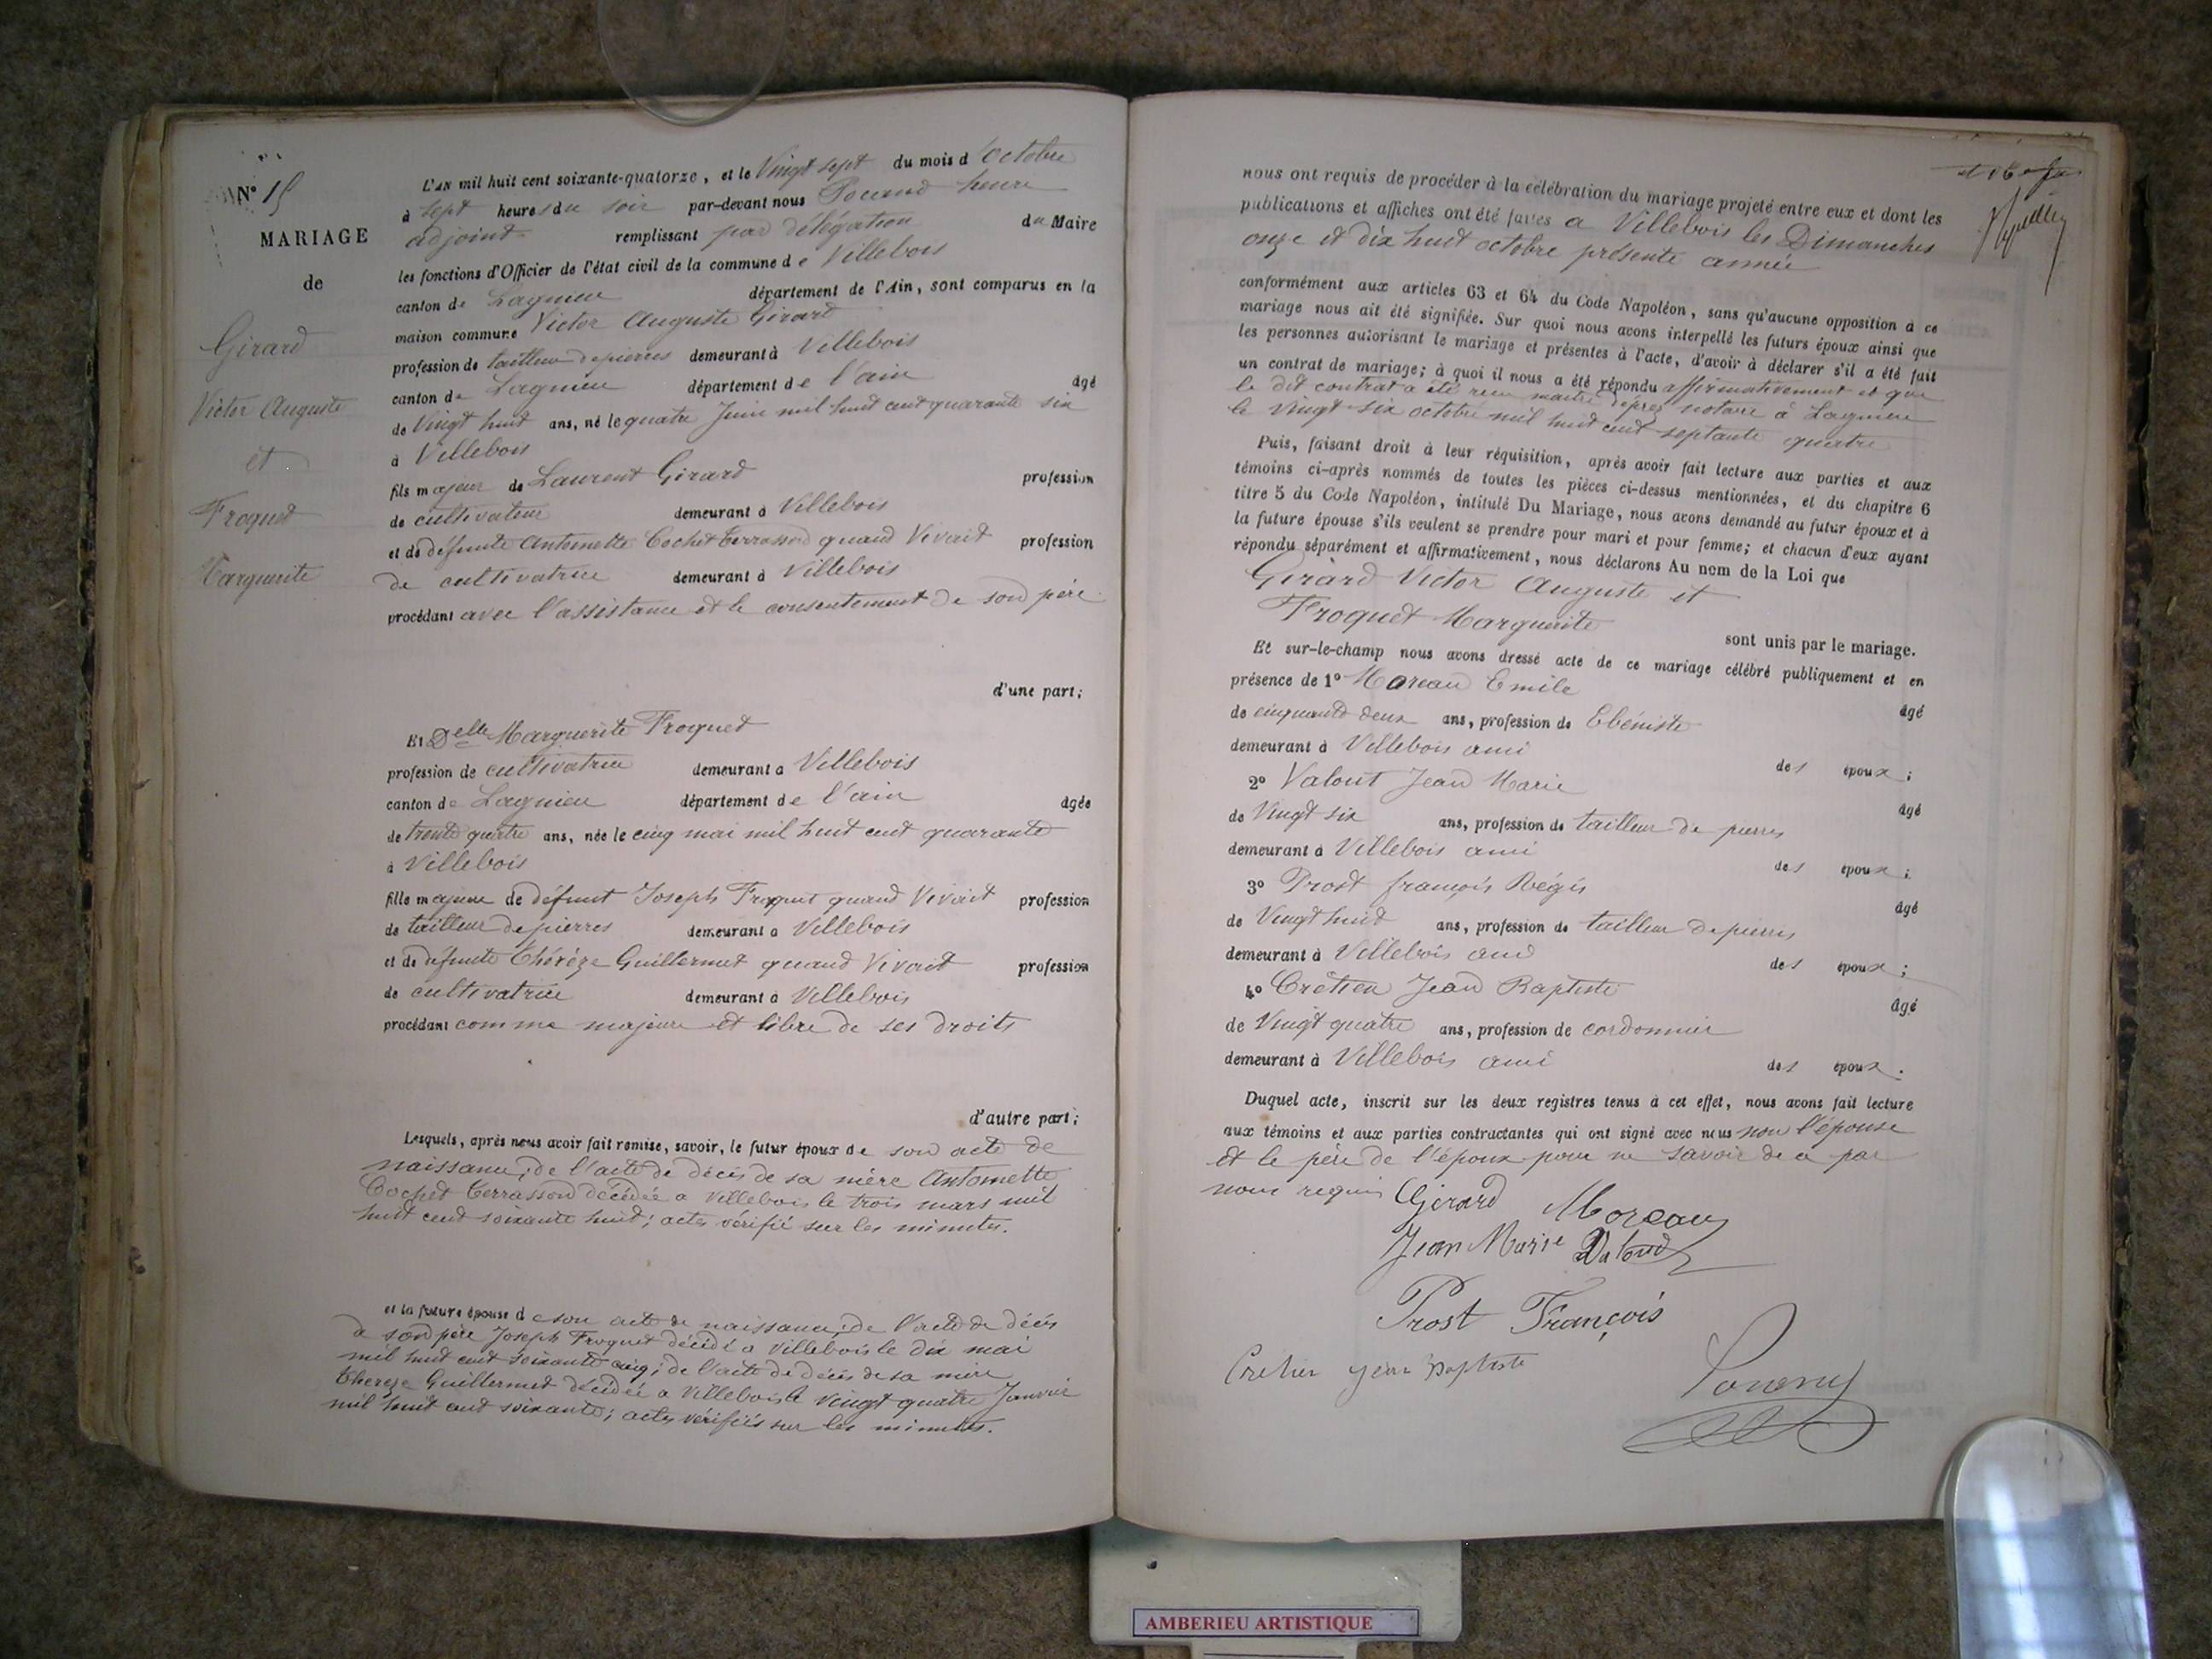 N° 15
MARIAGE
de
Girard
Victor Auguste
et
Froquet
Marguerite
L'AN mil huit cent soixante-quatorze, et le Vingt sept du mois d'Octobre
à sept heures du soir par-devant nous Pocand henri
adjoint remplissant par délégation du Maire
les fonctions d'Officier de l'état civil de la commune de Villebois
canton de Lagnieu département de l'Ain, sont comparus en la
maison commune Victor Auguste Girard
profession de tailleur de pierres demeurant à Villebois
canton de Lagnieu département de l'ain âgé
de Vingt huit ans, né le quatre Juin mil huit cent quarante six
à Villebois
fils majeur de Laurent Girard profession
de cultivateur demeurant à Villebois
et de défunte Antoinette Cochet Terrasson quand Vivait profession
de cultivatrice demeurant à Villebois
procédant avec l'assistance et le consentement de son père
d'une part;
Et Delle Marguerite Froquet
profession de cultivatrice demeurant à Villebois
canton de Lagnieu département de l'ain âgée
de trente quatre ans, née le cinq mai mil huit cent quarante
à Villebois
fille majeure de défunt Joseph Froquet quand Vivait profession
de tailleur de pierres demeurant à Villebois
et de défunte Thérèze Guillermet quand Vivait profession
de cultivatrice demeurant à Villebois
procédant comme majeure et libre de ses droits
d'autre part;
Lesquels, après nous avoir fait remise, savoir, le futur époux de son acte de
naissance; de l'acte de décès de sa mère Antoinette
Cochet Terrasson décédée a Villebois le trois mars mil
huit cent soixante huit; actes vérifié sur les minutes.
et la future épouse de son acte de naissance; de l'acte de décès
de son père Joseph Froquet décédé a Villebois le dix mai
mil huit cent soixante cinq; de l'acte de décès de sa mère
Thereze Guillermet décédée a Villebois le vingt quatre Janvier
mil huit cent soixante; actes vérifiés sur les minutes.
nous ont requis de procéder à la célébration du mariage projeté entre eux et dont les
publications et affiches ont été faites a Villebois les Dimanches
onze et dix huit octobre présente année
conformément aux articles 63 et 64 du Code Napoléon, sans qu'aucune opposition à ce
mariage nous ait été signifiée. Sur quoi nous avons interpellé les futurs époux ainsi que
les personnes autorisant le mariage et présentes à l'acte, d'avoir à déclarer s'il a été fait
un contrat de mariage; à quoi il nous a été répondu affirmativement et que
le dit contrat a été reçu maitre notaire à Lagnieu
le Vingt six octobre mil huit cent septante quatre
Puis, faisant droit à leur réquisition, après avoir fait lecture aux parties et aux
témoins ci-après nommés de toutes les pièces ci-dessus mentionnées, et du chapitre 6
titre 5 du Code Napoléon, intitulé Du Mariage, nous avons demandé au futur époux et à
la future épouse s'ils veulent se prendre pour mari et pour femme; et chacun d'eux ayant
répondu séparément et affirmativement, nous déclarons Au nom de la Loi que
Girard Victor Auguste et
Froquet Marguerite
sont unis par le mariage.
Et sur-le-champ nous avons dressé acte de ce mariage célébré publiquement et en
présence de 1° Moreau Emile
âgé
de cinquante deux ans, profession de Ebéniste
demeurant à Villebois ami
des époux;
2° Valout Jean Marie
âgé
de Vingt six ans, profession de tailleur de pierres
demeurant à Villebois ami
des époux;
3° Prost françois Régis
âgé
de Vingt huit ans, profession de tailleur de pierres
demeurant à Villebois ami
des époux;
4° Crétien Jean Baptiste
âgé
de Vingt quatre ans, profession de cordonnier
demeurant à Villebois ami
des époux.
Duquel acte, inscrit sur les deux registres tenus à cet effet, nous avons fait lecture
aux témoins et aux parties contractantes qui ont signé avec nous non l'épouse
et le père de l'époux pour ne savoir de ce par
nous requis Girard Moreau
Jean Marie
Prost François
Cretien jean Baptiste
AMBERIEU ARTISTIQUE